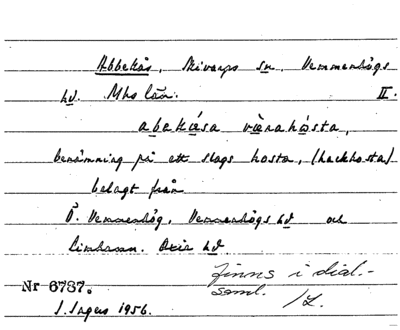 Abbekås, Skivarps sn, Vemmenhögs
hd. Mhs län. II.
abekåsa vårahósta,
benämning på ett slags hosta, (hackhosta)
belagt från
Ö. Vemmenhög, Vemmenhögs hd och
Limhamn. Oxie hd
Finns i dial.-
saml. /L.
Nr 6787.
I. Ingers 1956.